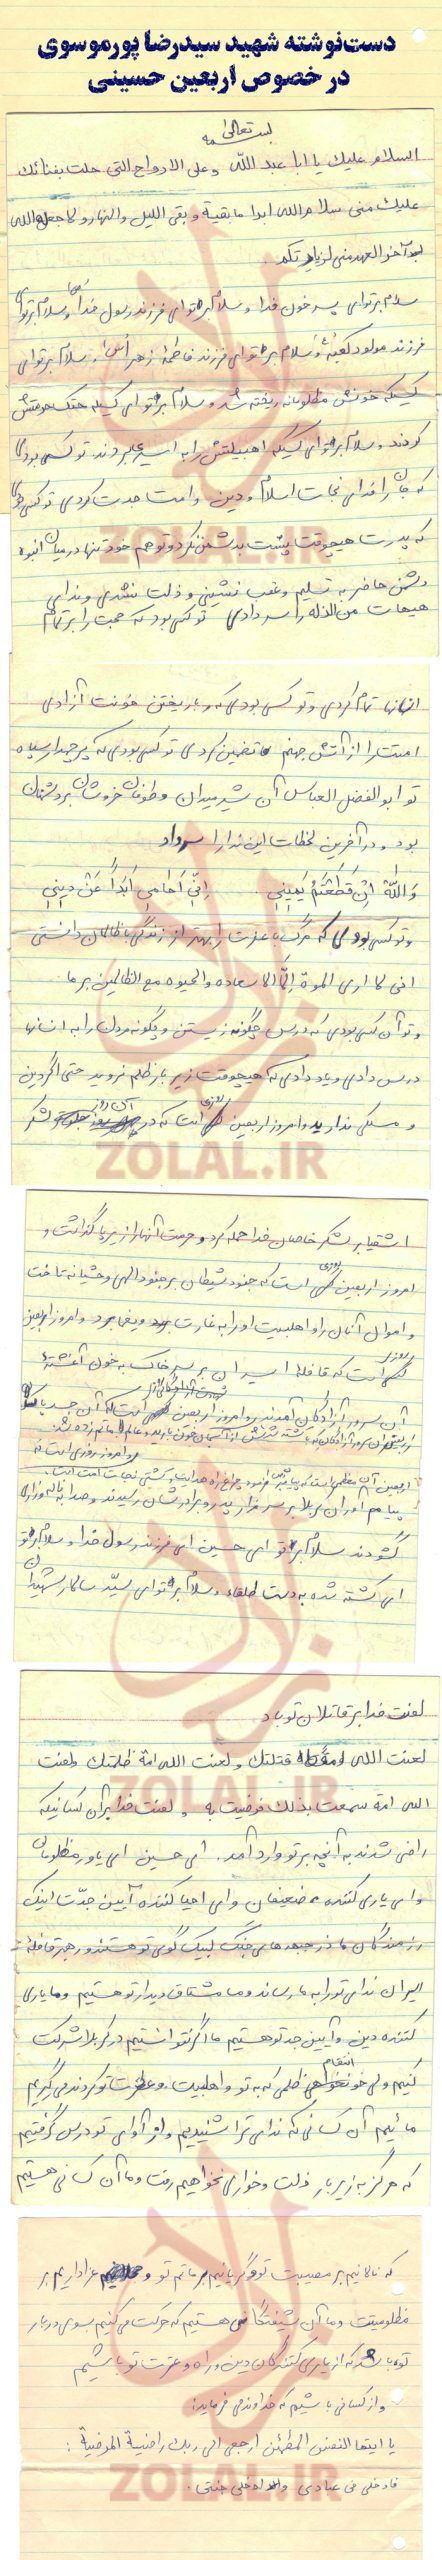 دست‌نوشته شهید سیدرضا پورموسوی
در خصوص اربعین حسینی
بسمه تعالی
السلام علیک یا ابا عبد الله و علی الارواح التی حلت بفنائک
علیک منی سلام الله ابدا ما بقیت و بقی اللیل والنهار ولا جعل الله
آخر العهد منی لزیارتکم.
سلام بر تو ای پسر خون خدا و سلام بر تو ای فرزند رسول خدا و سلام بر تو ای
فرزند مولود کعبه و سلام بر تو ای فرزند فاطمه زهرا و سلام بر تو ای
کسیکه خونش مظلومانه ریخته شد و سلام بر تو ای کسیکه هتک حرمتش
کردند و سلام بر تو ای کسیکه اهلبیتش را به اسیری بردند تو کسی بودی
که جان را فدای نجات اسلام و دین و امت جدت کردی تو کسی بودی
که پدرت هیچوقت پشت به دشمن نکرد و تو هم خود تنها در میان انبوه
دشمن حاضر به تسلیم و عقب نشینی و ذلت نشدی و ندای
هیهات من الذله را سر دادی تو کسی بودی که حجت را بر تمام
انسانها تمام کردی و تو کسی بودی که با ریختن خونت آزادی
امتت را از آتش جهنم تضمین کردی تو کسی بودی که پرچمدار سپاه
تو ابوالفضل العباس آن شیر میدان و طوفان خروشان بر دشمنان
بود و در آخرین لحظات این ندا را سر داد
وَاللّهُ اِنْ قَطَعْتُمُ یَمِینِی . اِنِّی اُحَامِی اَبَدًا عَنْ دِینِی
و تو کسی بودی که مرگ با عزت را بهتر از زندگی با ظالمان داشتی
انی لا اری الموت الا السعاده والحیوه مع الظالمین برما.
و تو آن کسی بودی که درس چگونه زیستن و چگونه مردن را به انسانها
درس دادی و یاد دادی که هیچوقت زیر بار ظلم نروید حتی اگر دین
و مسلکی ندارید و امروز اربعین روزی است که در آن روز لشکر
اشقیا بر لشکر خاصان خدا حمله کرد و حرمت آنها را زیر پا گذاشت و
امروز اربعین روزی است که جنود شیطان بر جنود الهی وحشیانه تاخت
و اموال آنان را و اهلبیت او را به غارت برد و یغما برد و امروز اربعین
روزی است که قافله اسیران بر سر خاک به خون آغشته
آن سرور آزادگان آمدند و امروز اربعین است که آن جسد پاک
پیام آوران کربلا بر سر مزار پدر و برادرشان رسیدند و صدا به ناله و زاری
گشودند سلام بر تو ای حسین ای فرزند رسول خدا و سلام بر تو
ای کشته شده به دست طلقاء و سلام بر تو ای سید و سالار شهیدان
لعنت خدا بر قاتلان تو باد
لعنت الله امة قتلتک و لعنت الله امة ظلمتک و لعنت
الله امة سمعت بذلک فرضیت به و لعنت خدا بر آن کسانیکه
راضی شدند به آنچه بر تو وارد آمد. ای حسین ای یاور مظلومان
و ای یاری کننده ضعیفان و ای احیا کننده آیین جدّت اینک
رزمندگان ما در جبهه های جنگ لبیک گوی تو هستند و رهبر قافله
ایران ندای تو را به ما رساند و ما مشتاق دیدار تو هستیم و ما یاری
کننده دین و آیین جد تو هستیم ما اگر نتوانستیم در کربلا شرکت
کنیم ولی انتقام ظلمی که به تو و اهلبیت و عترت تو کردند می گیریم
مائیم آن کسانی که ندای ترا شنیدیم و از آوای تو درس گرفتیم
که هرگز به زیر بار ذلت و خواری نخواهیم رفت و ما آن کسانی هستیم
که نالانیم بر مصیبت تو و گریانیم بر ماتم تو و عزاداریم بر
مظلومیتت و ما آن شیفتگانی هستیم که حرکت می کنیم بسوی دربار
تو باشد که از یاری کنندگان دین و راه و عترت تو باشیم
و از کسانی باشیم که خداوند می فرماید:
یا ایتها النفس المطمئن ارجعی الی ربک راضیة المرضیة:
فادخلی فی عبادی وادخلی جنتی.
ZOLAL.IR
ZOLAL.IR
ZOLAL.IR
ZOLAL.IR
ZOLAL.IR